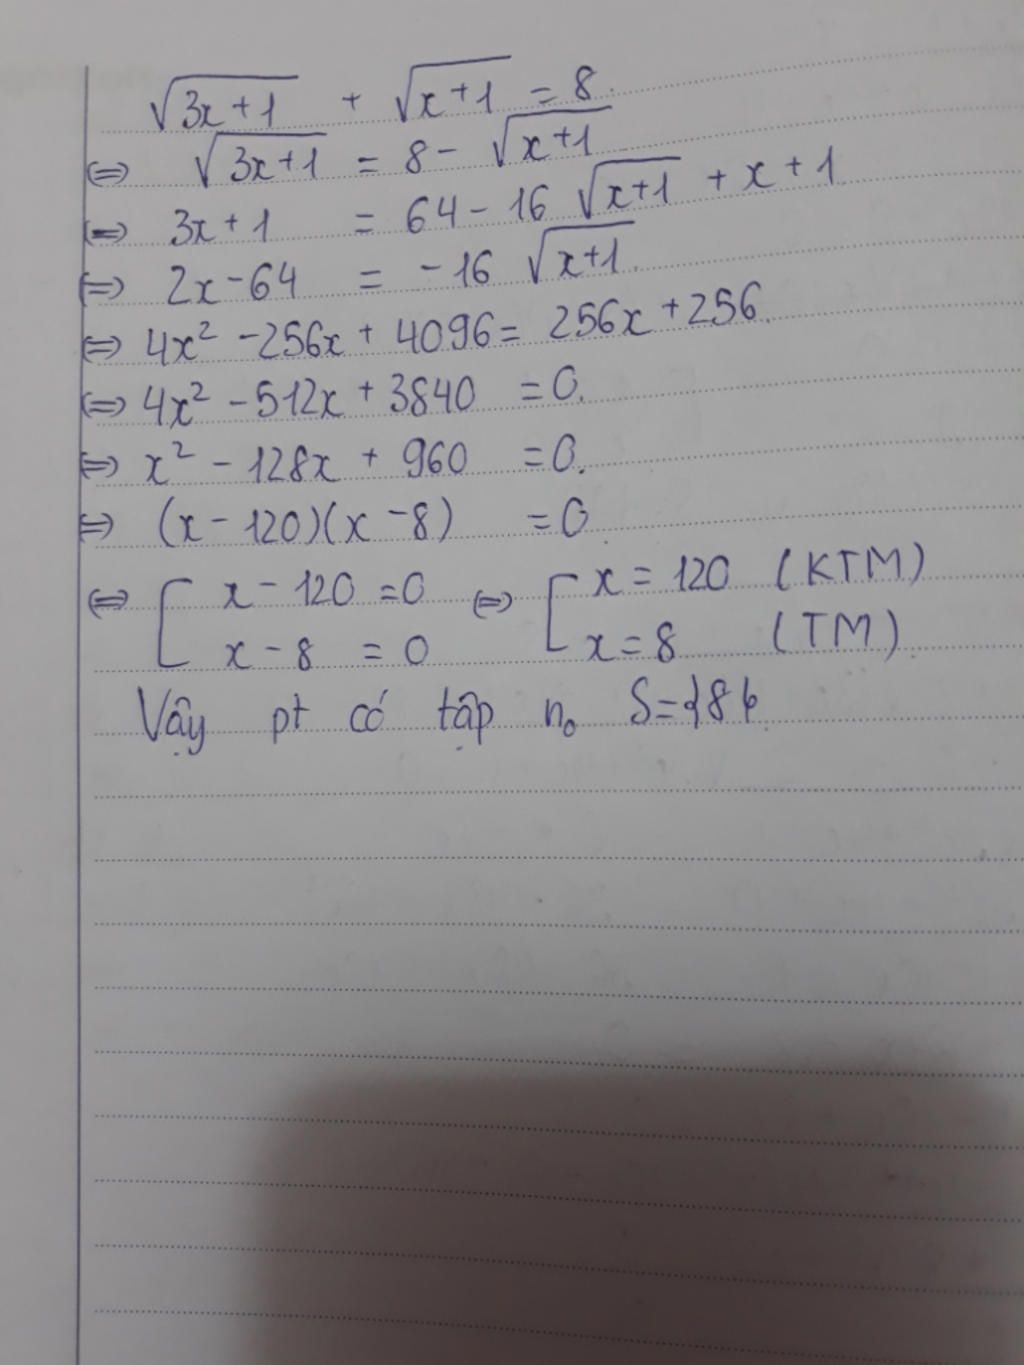 √(3x+1) + √(x+1) = 8.
⇔ √(3x+1) = 8 - √(x+1)
⇔ 3x+1 = 64 - 16 √(x+1) + x + 1
⇔ 2x - 64 = -16 √(x+1).
⇔ 4x² - 256x + 4096 = 256x + 256.
⇔ 4x² - 512x + 3840 = 0.
⇔ x² - 128x + 960 = 0.
⇔ (x - 120)(x - 8) = 0
⇔ [ x - 120 = 0 ⇔ [ x = 120 (KTM)
x - 8 = 0 x = 8 (TM).
Vậy pt có tập n₀ S={8}.